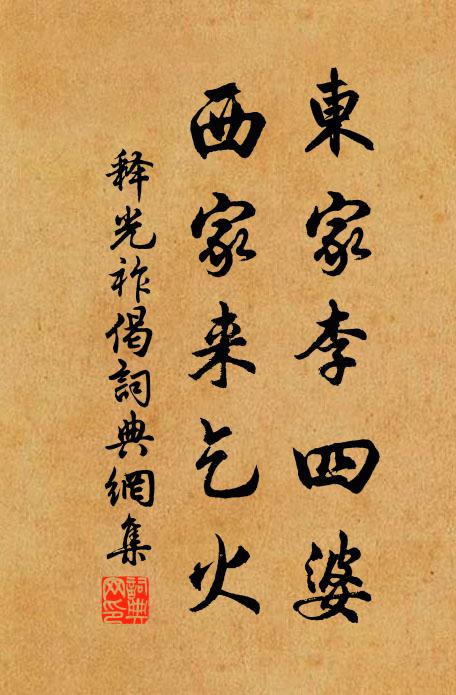 東家李四婆
西家来乞火
释光祚偈詞典網集
詞典
网印